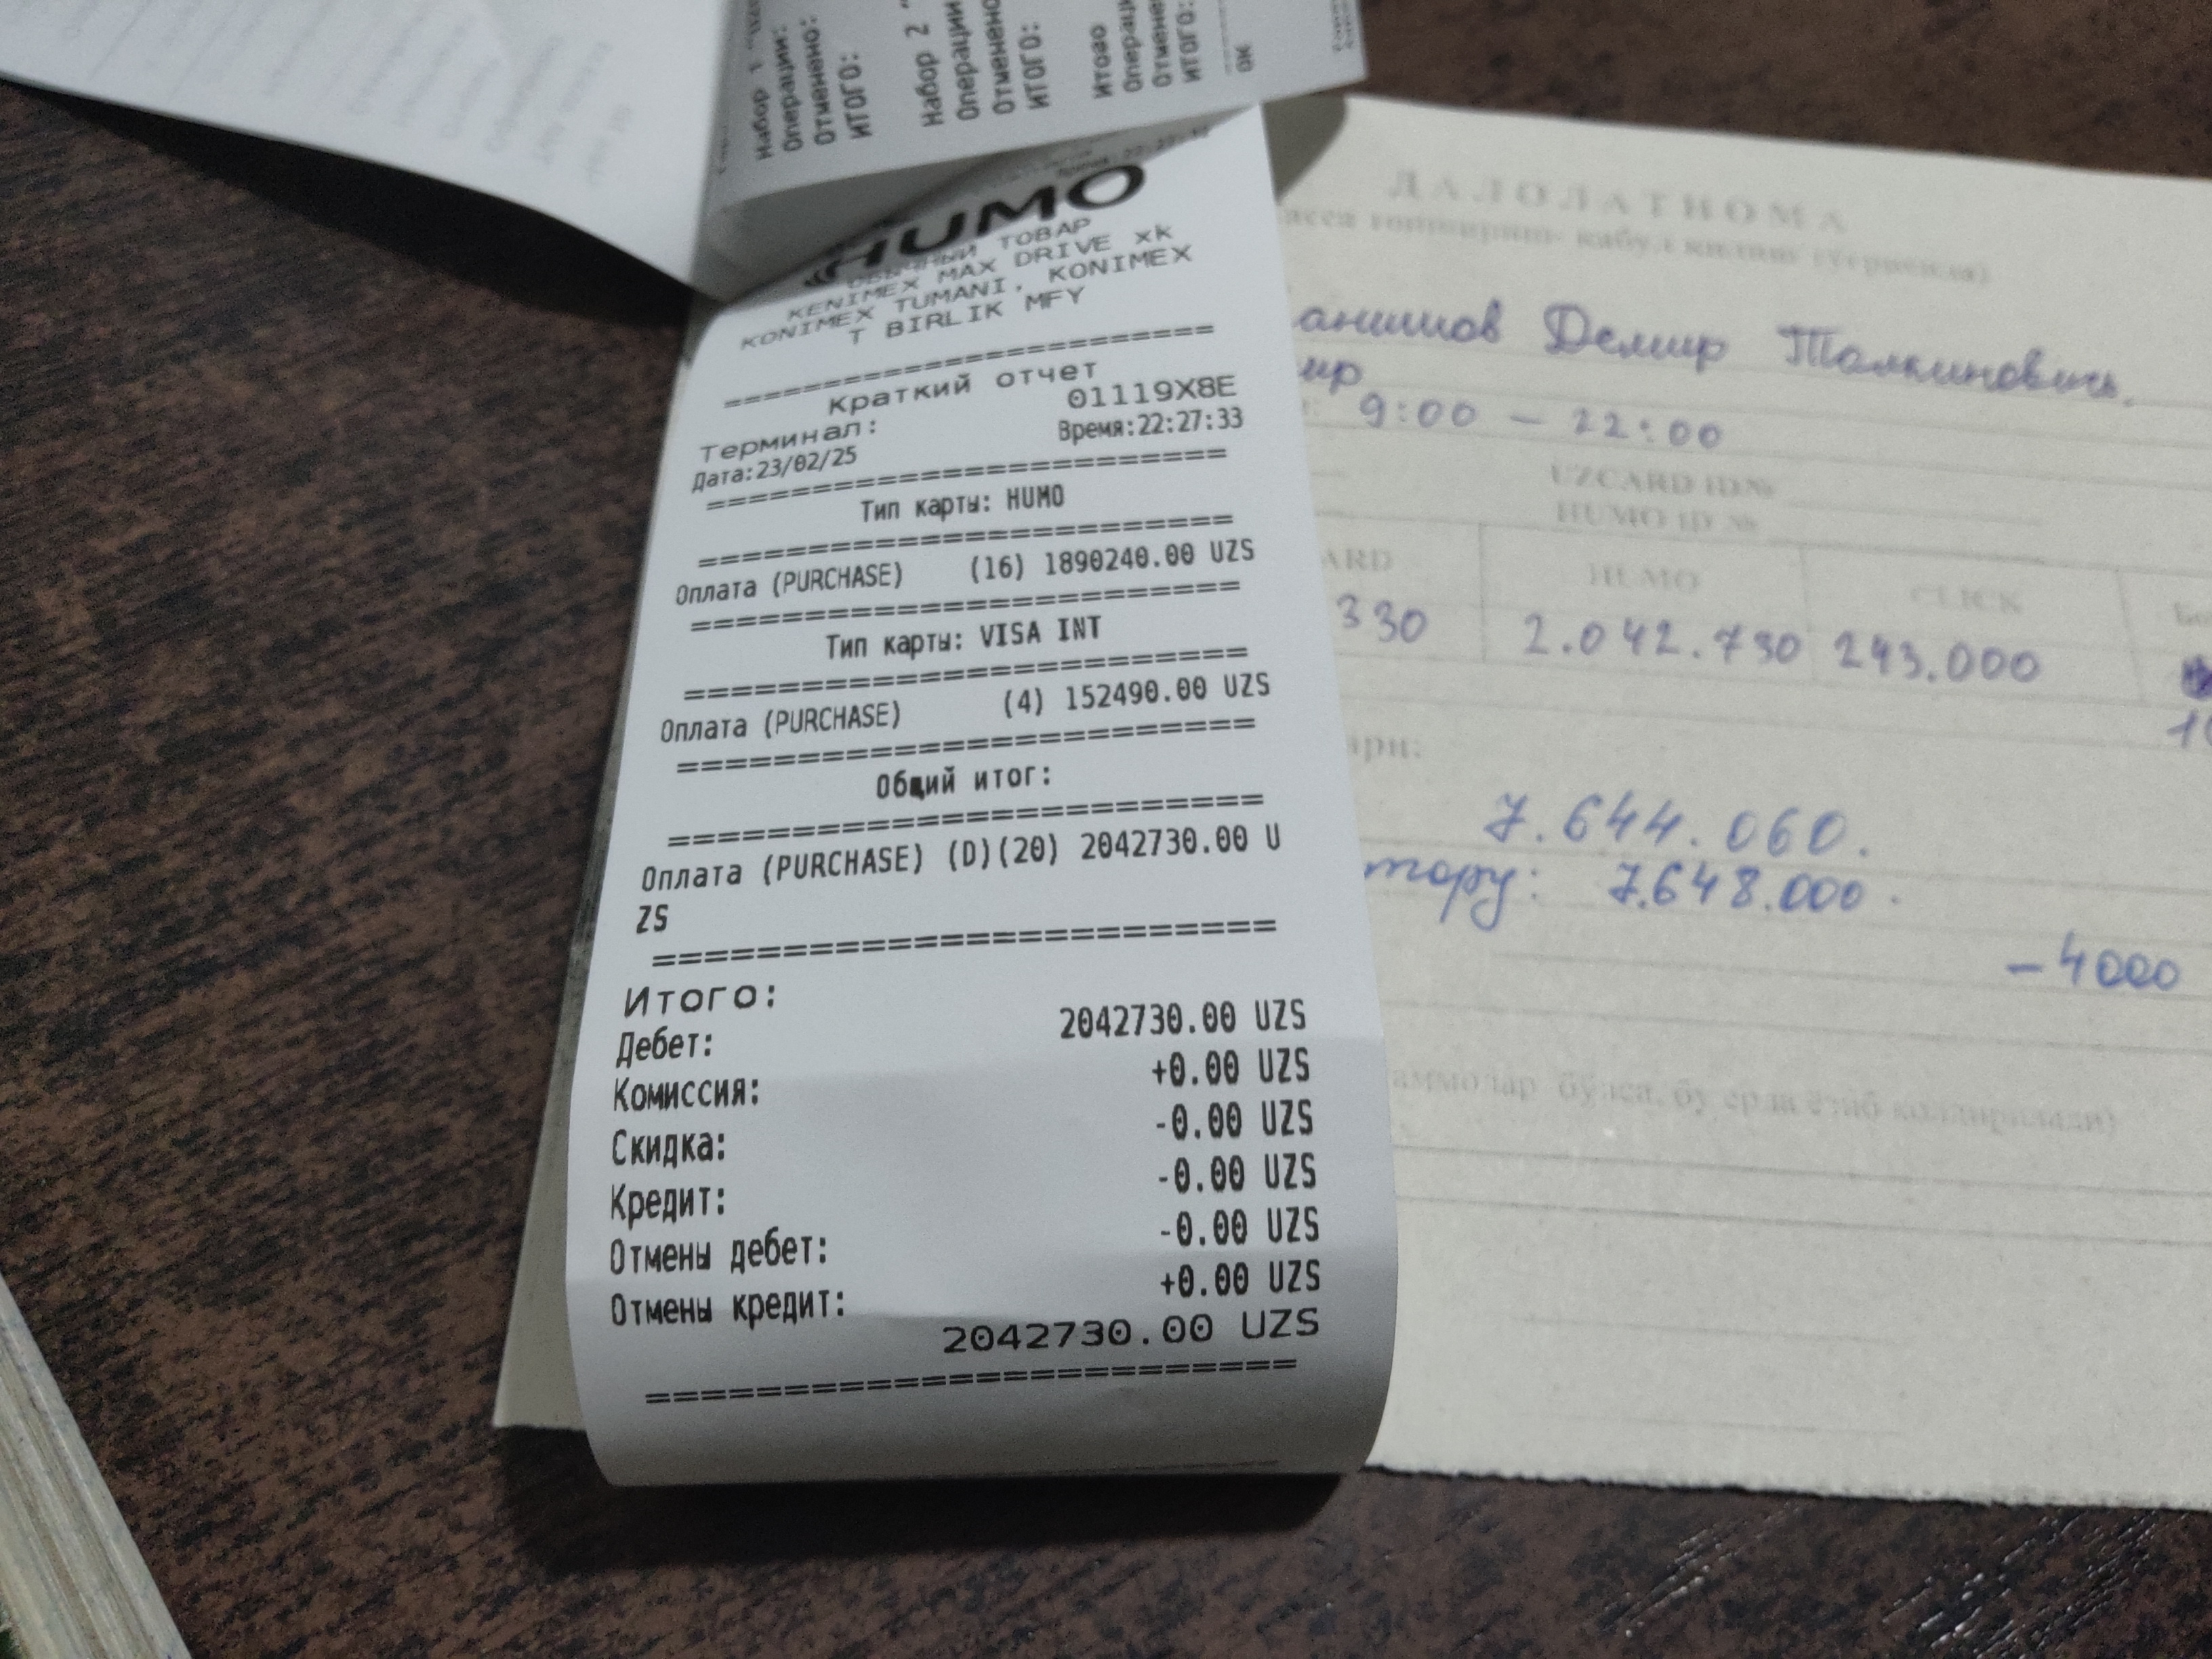 Набор 1
Операции:
Отменено:
ИТОГО:
Набор 2
Операции
Отменено
ИТОГО:
Итого
Операц
Отмене
ИТОГО:
OK
HUMO
ОБЫЧНЫЙ ТОВАР
KENIMEX MAX DRIVE xk
KONIMEX TUMANI, KONIMEX
T BIRLIK MFY
Краткий отчет
Терминал: 01119X8E
Дата:23/02/25 Время:22:27:33
Тип карты: HUMO
Оплата (PURCHASE) (16) 1890240.00 UZS
Тип карты: VISA INT
Оплата (PURCHASE) (4) 152490.00 UZS
Общий итог:
Оплата (PURCHASE) (D)(20) 2042730.00 U
ZS
Итого:
Дебет: 2042730.00 UZS
Комиссия: +0.00 UZS
Скидка: -0.00 UZS
Кредит: -0.00 UZS
Отмены дебет: -0.00 UZS
Отмены кредит: +0.00 UZS
2042730.00 UZS
ДАЛОЛАТНОМА
асса топшириш- кабул килиш тўғрисида)
Демир Толкинович.
ир
9:00 - 22:00
UZCARD ID№
HUMO ID №
ARD HUMO CLICK
330 2.042.730 243.000
ари:
7.644.060.
тору: 7.648.000.
-4000
аммолар бўлса, бу ерда ёзиб колдирилади)